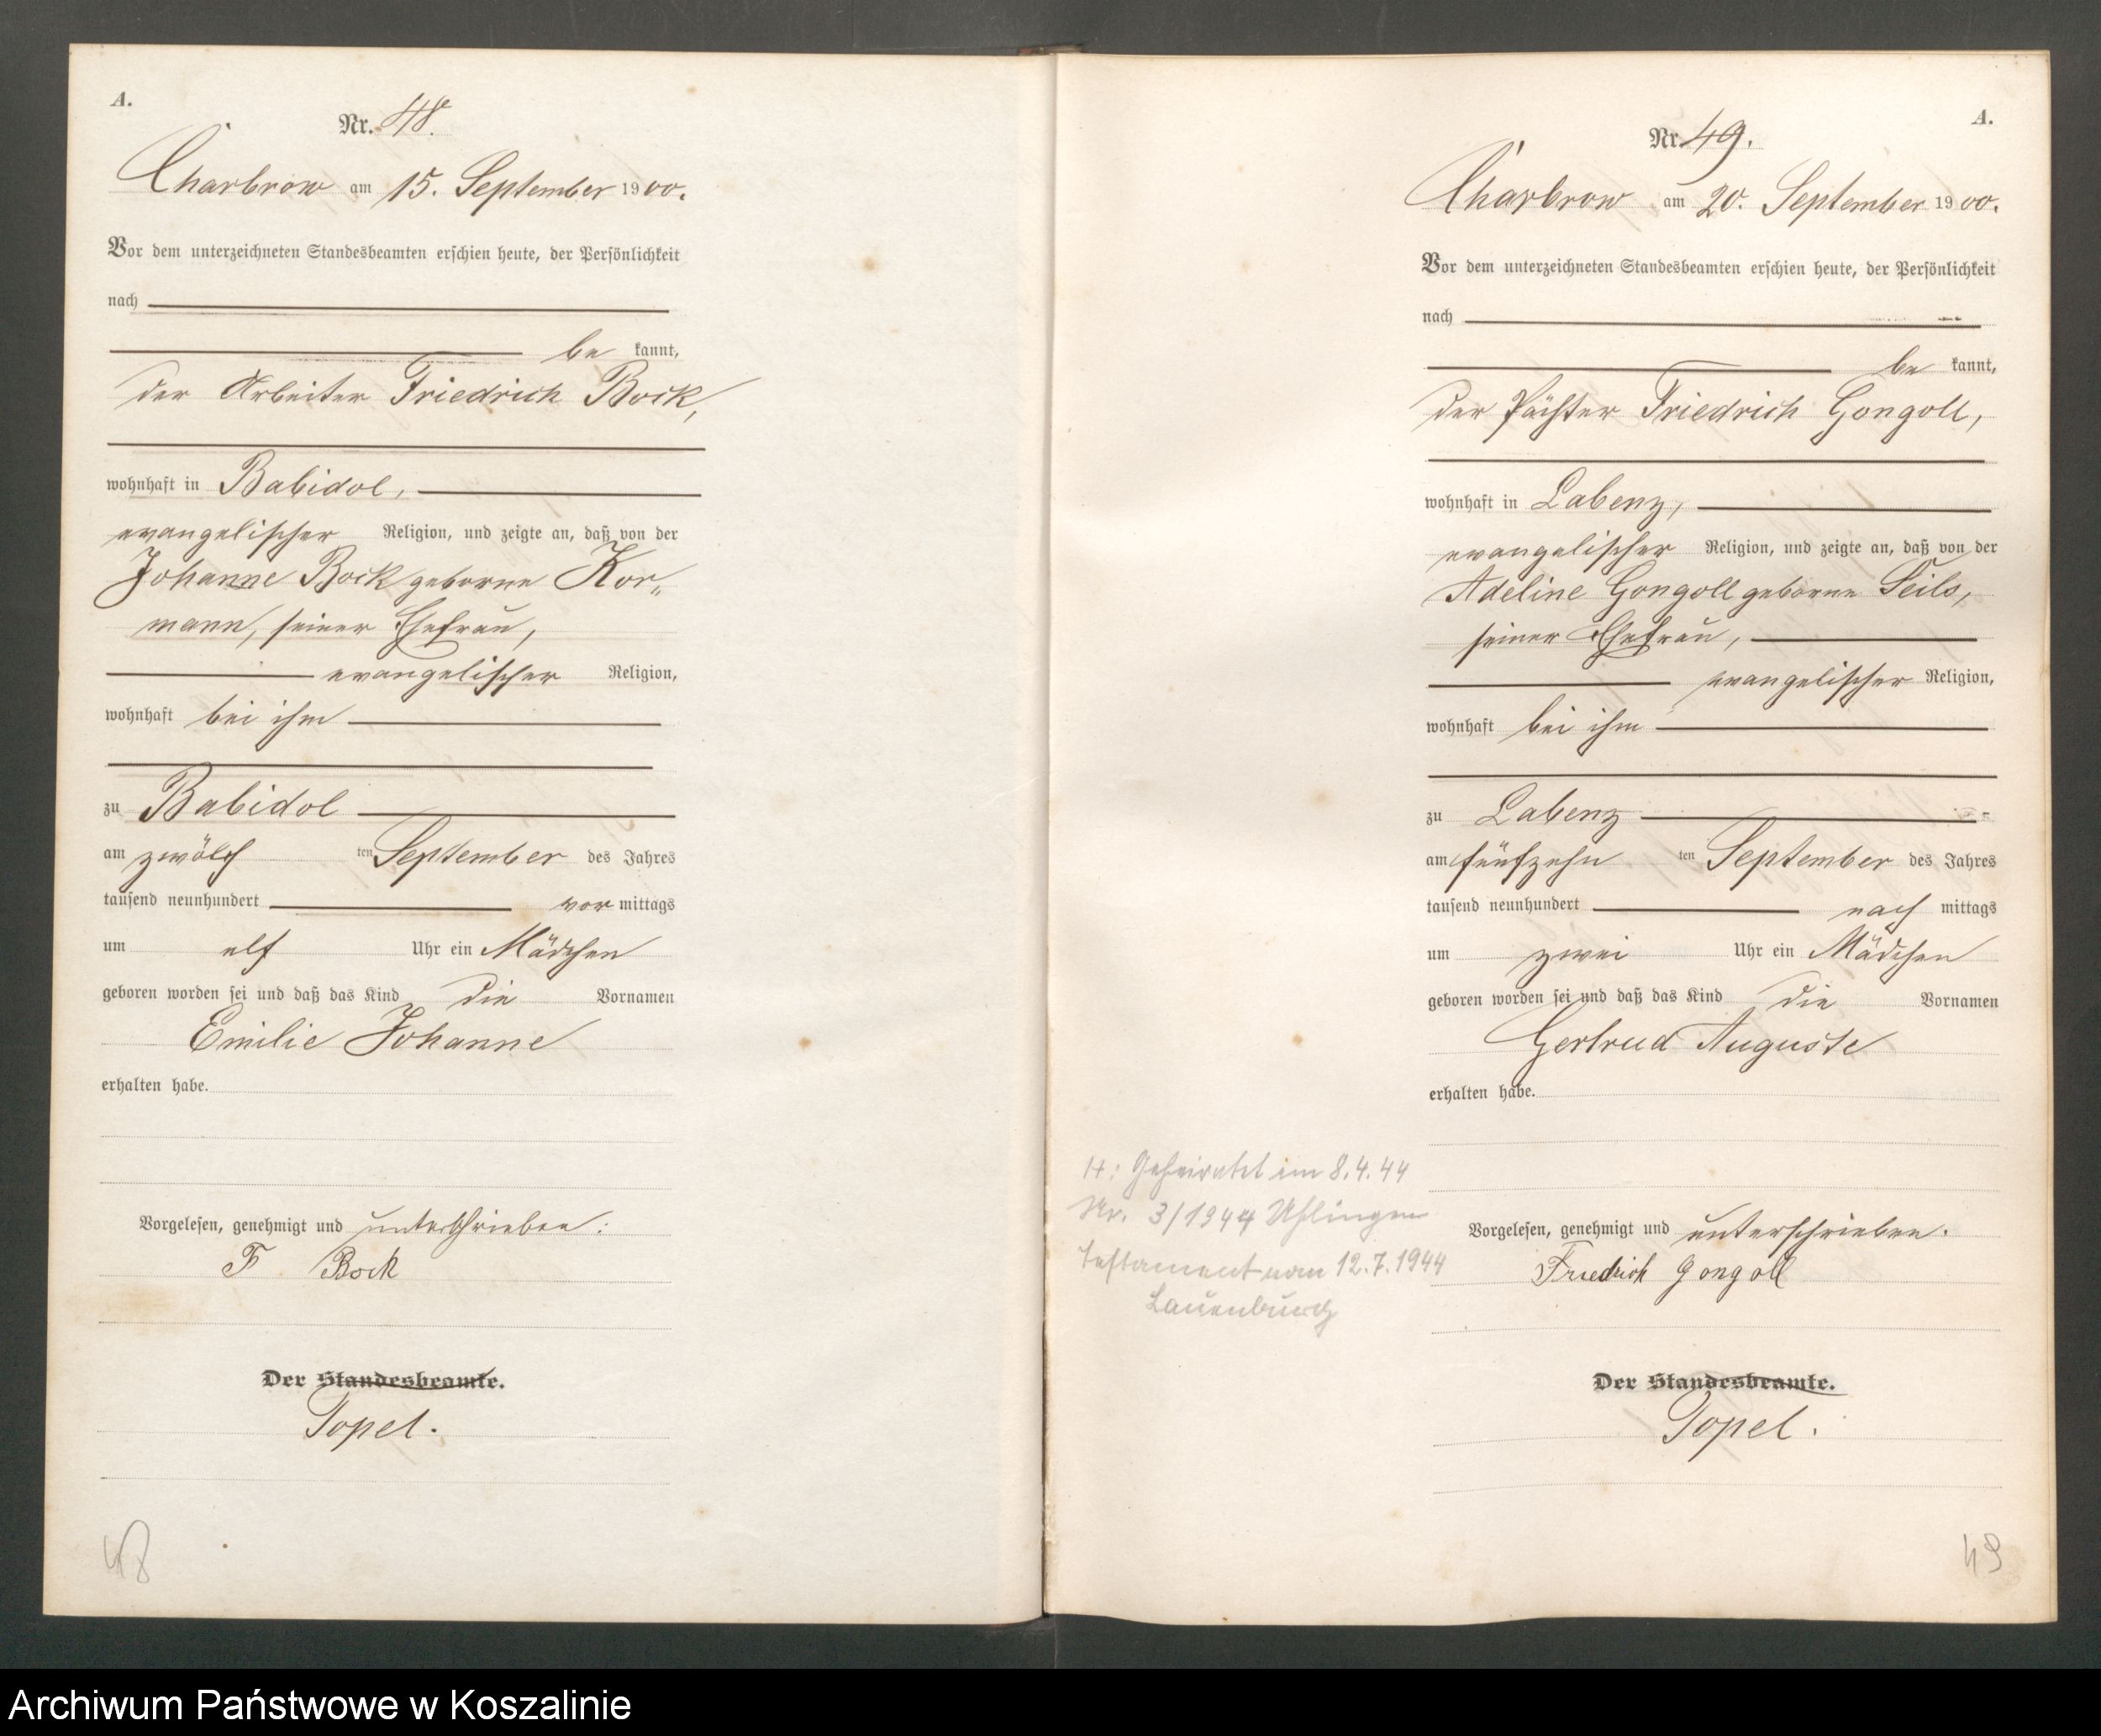 A.
Nr. 48.
Charbrow am 15. September 1900.
Vor dem unterzeichneten Standesbeamten erschien heute, der Persönlichkeit
nach
be kannt,
der Arbeiter Friedrich Bock,
wohnhaft in Babidol,
evangelischer Religion, und zeigte an, daß von der
Johanne Bock geborne Kor„
mann, seiner Ehefrau,
evangelischer Religion,
wohnhaft bei ihm
zu Babidol
am zwölf ten September des Jahres
tausend neunhundert vor mittags
um elf Uhr ein Mädchen
geboren worden sei und daß das Kind die Vornamen
Emilie Johanne
erhalten habe.
Vorgelesen, genehmigt und unterschrieben:
F Bock
Der Standesbeamte.
Topel.
48
A.
Nr. 49.
Charbrow am 20. September 1900.
Vor dem unterzeichneten Standesbeamten erschien heute, der Persönlichkeit
nach
be kannt,
der Pächter Friedrich Gongoll,
wohnhaft in Labenz,
evangelischer Religion, und zeigte an, daß von der
Adeline Gongoll geborne Seils,
seiner Ehefrau,
evangelischer Religion,
wohnhaft bei ihm
zu Labenz
am fünfzehn ten September des Jahres
tausend neunhundert nach mittags
um zwei Uhr ein Mädchen
geboren worden sei und daß das Kind die Vornamen
Gertrud Auguste
erhalten habe.
H: Geheiratet im 8.4.44
Nr. 3/1944 Uhlingen
Testament vom 12.7.1944
Lauenburg
Vorgelesen, genehmigt und unterschrieben.
Friedrich Gongoll
Der Standesbeamte.
Topel.
49
Archiwum Państwowe w Koszalinie